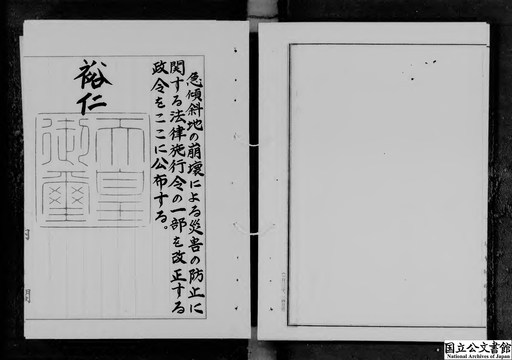 急傾斜地の崩壊による災害の防止に
関する法律施行令の一部を改正する
政令をここに公布する。
裕仁
天皇
御璽
国立公文書館
National Archives of Japan